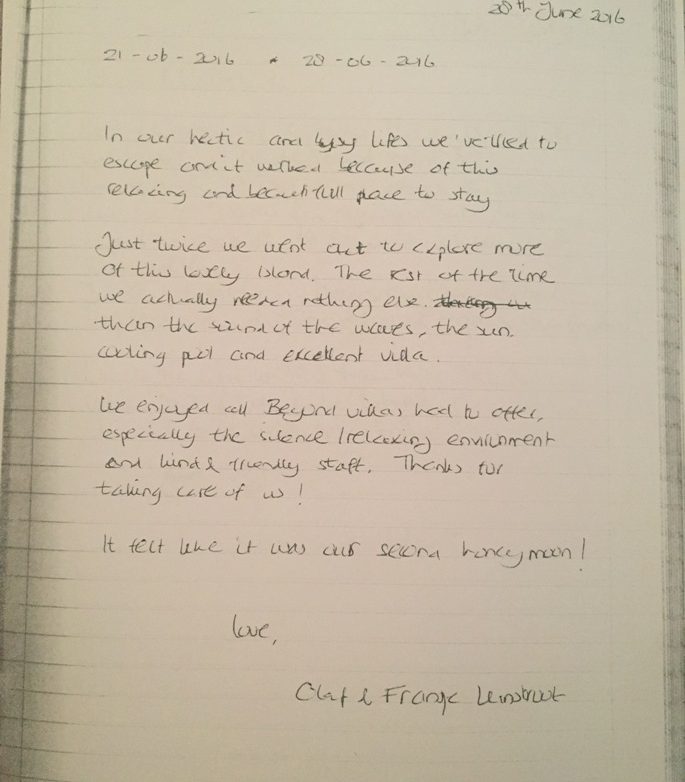 28th June 2016
21-06-2016 * 28-06-2016
In our hectic and bysy lifes we've tried to
escape and it worked because of this
relaxing and beautifull place to stay
Just twice we went out to explore more
of this lovely island. The rest of the time
we actually needed nothing else.
than the sound of the waves, the sun.
cooling pool and excellent villa.
We enjoyed all Beyond villas had to offer,
especially the silence/relaxing environment
and kind & friendly staff. Thanks for
taking care of us!
It felt like it was our second honeymoon!
Love,
Olaf &